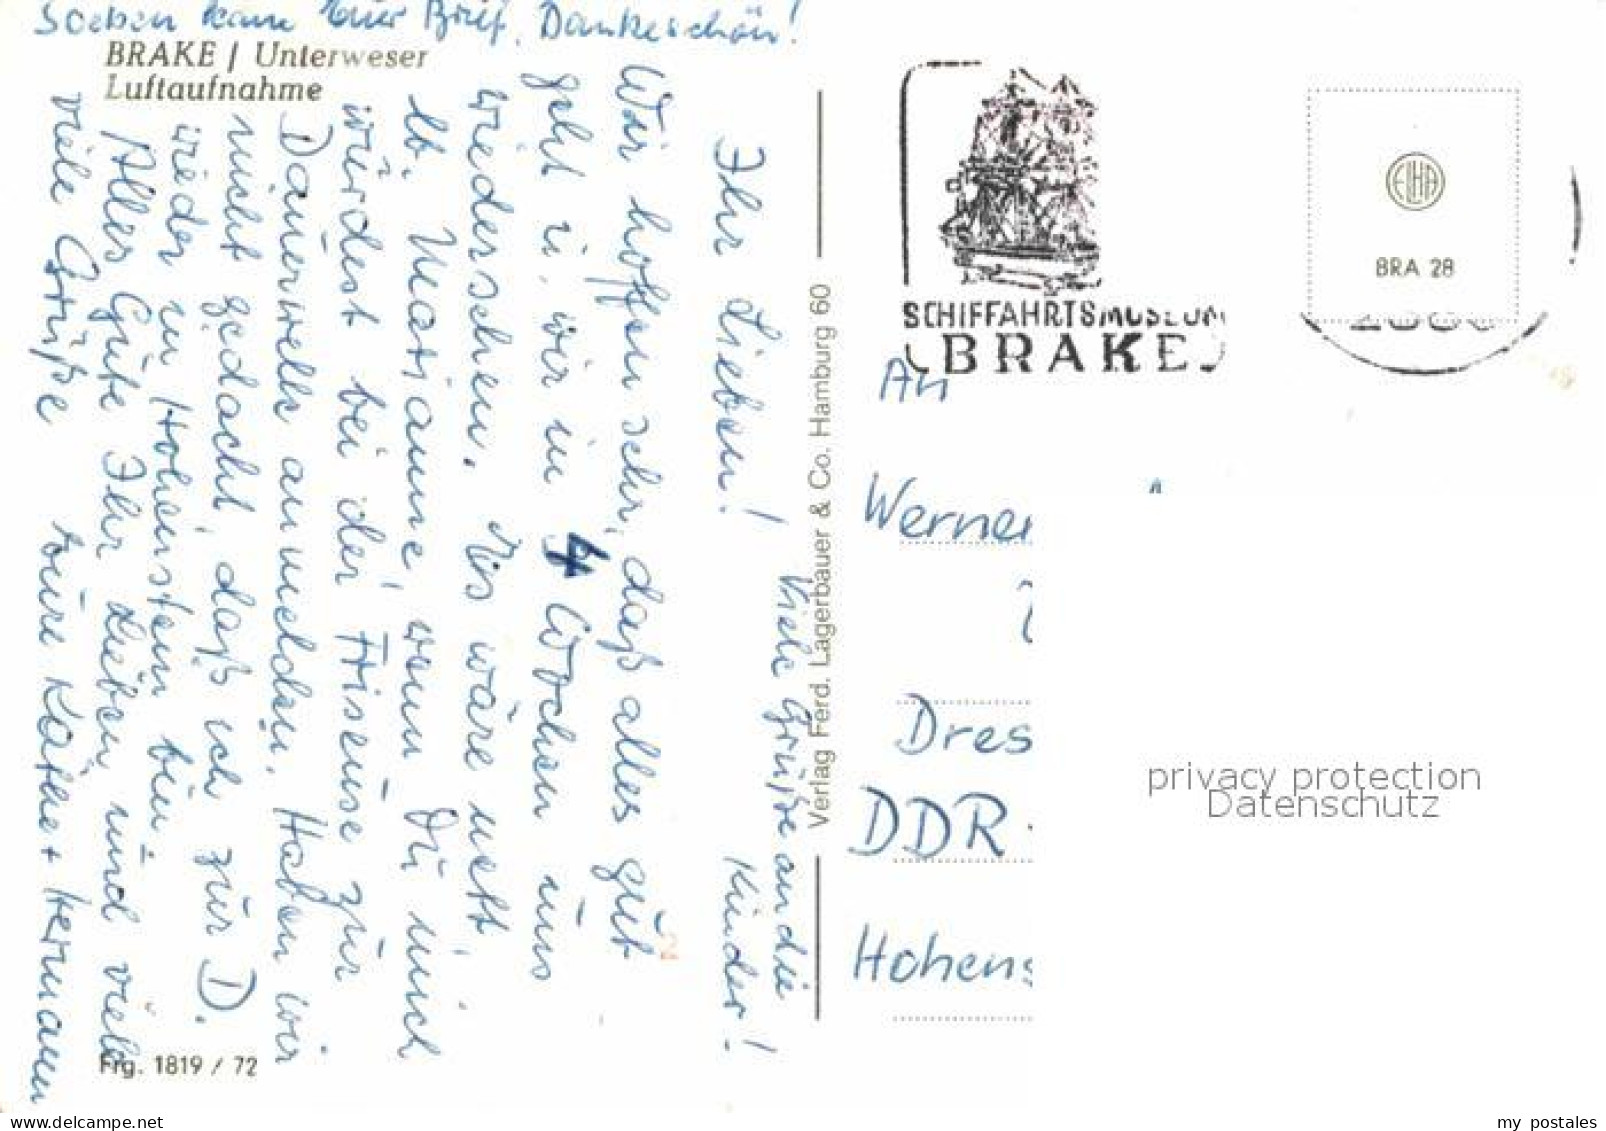 Soeben kam Euer Brief. Dankeschön!
BRAKE / Unterweser
Luftaufnahme
Ihr Lieben!
Wir hoffen sehr, daß alles gut
geht u. wir in 4 Wochen uns
wiedersehen. Es wäre nett,
lb. Marianne, wenn Du mich
würdest bei der Friseuse zur
Dauerwelle anmelden. Haben wir
nicht gedacht, daß ich zur D.
wieder in Hohenstein bin.
Alles Gute Ihr Lieben und viele
viele Grüße Eure Käthe + Hermann
Viele Grüße an die
Kinder!
Frg. 1819 / 72
Verlag Ferd. Lagerbauer & Co. Hamburg 60
SCHIFFAHRTSMUSEUM
BRAKE
ELHA
BRA 28
An
Werner
Dres
DDR
Hohens
privacy protection
Datenschutz
my postales